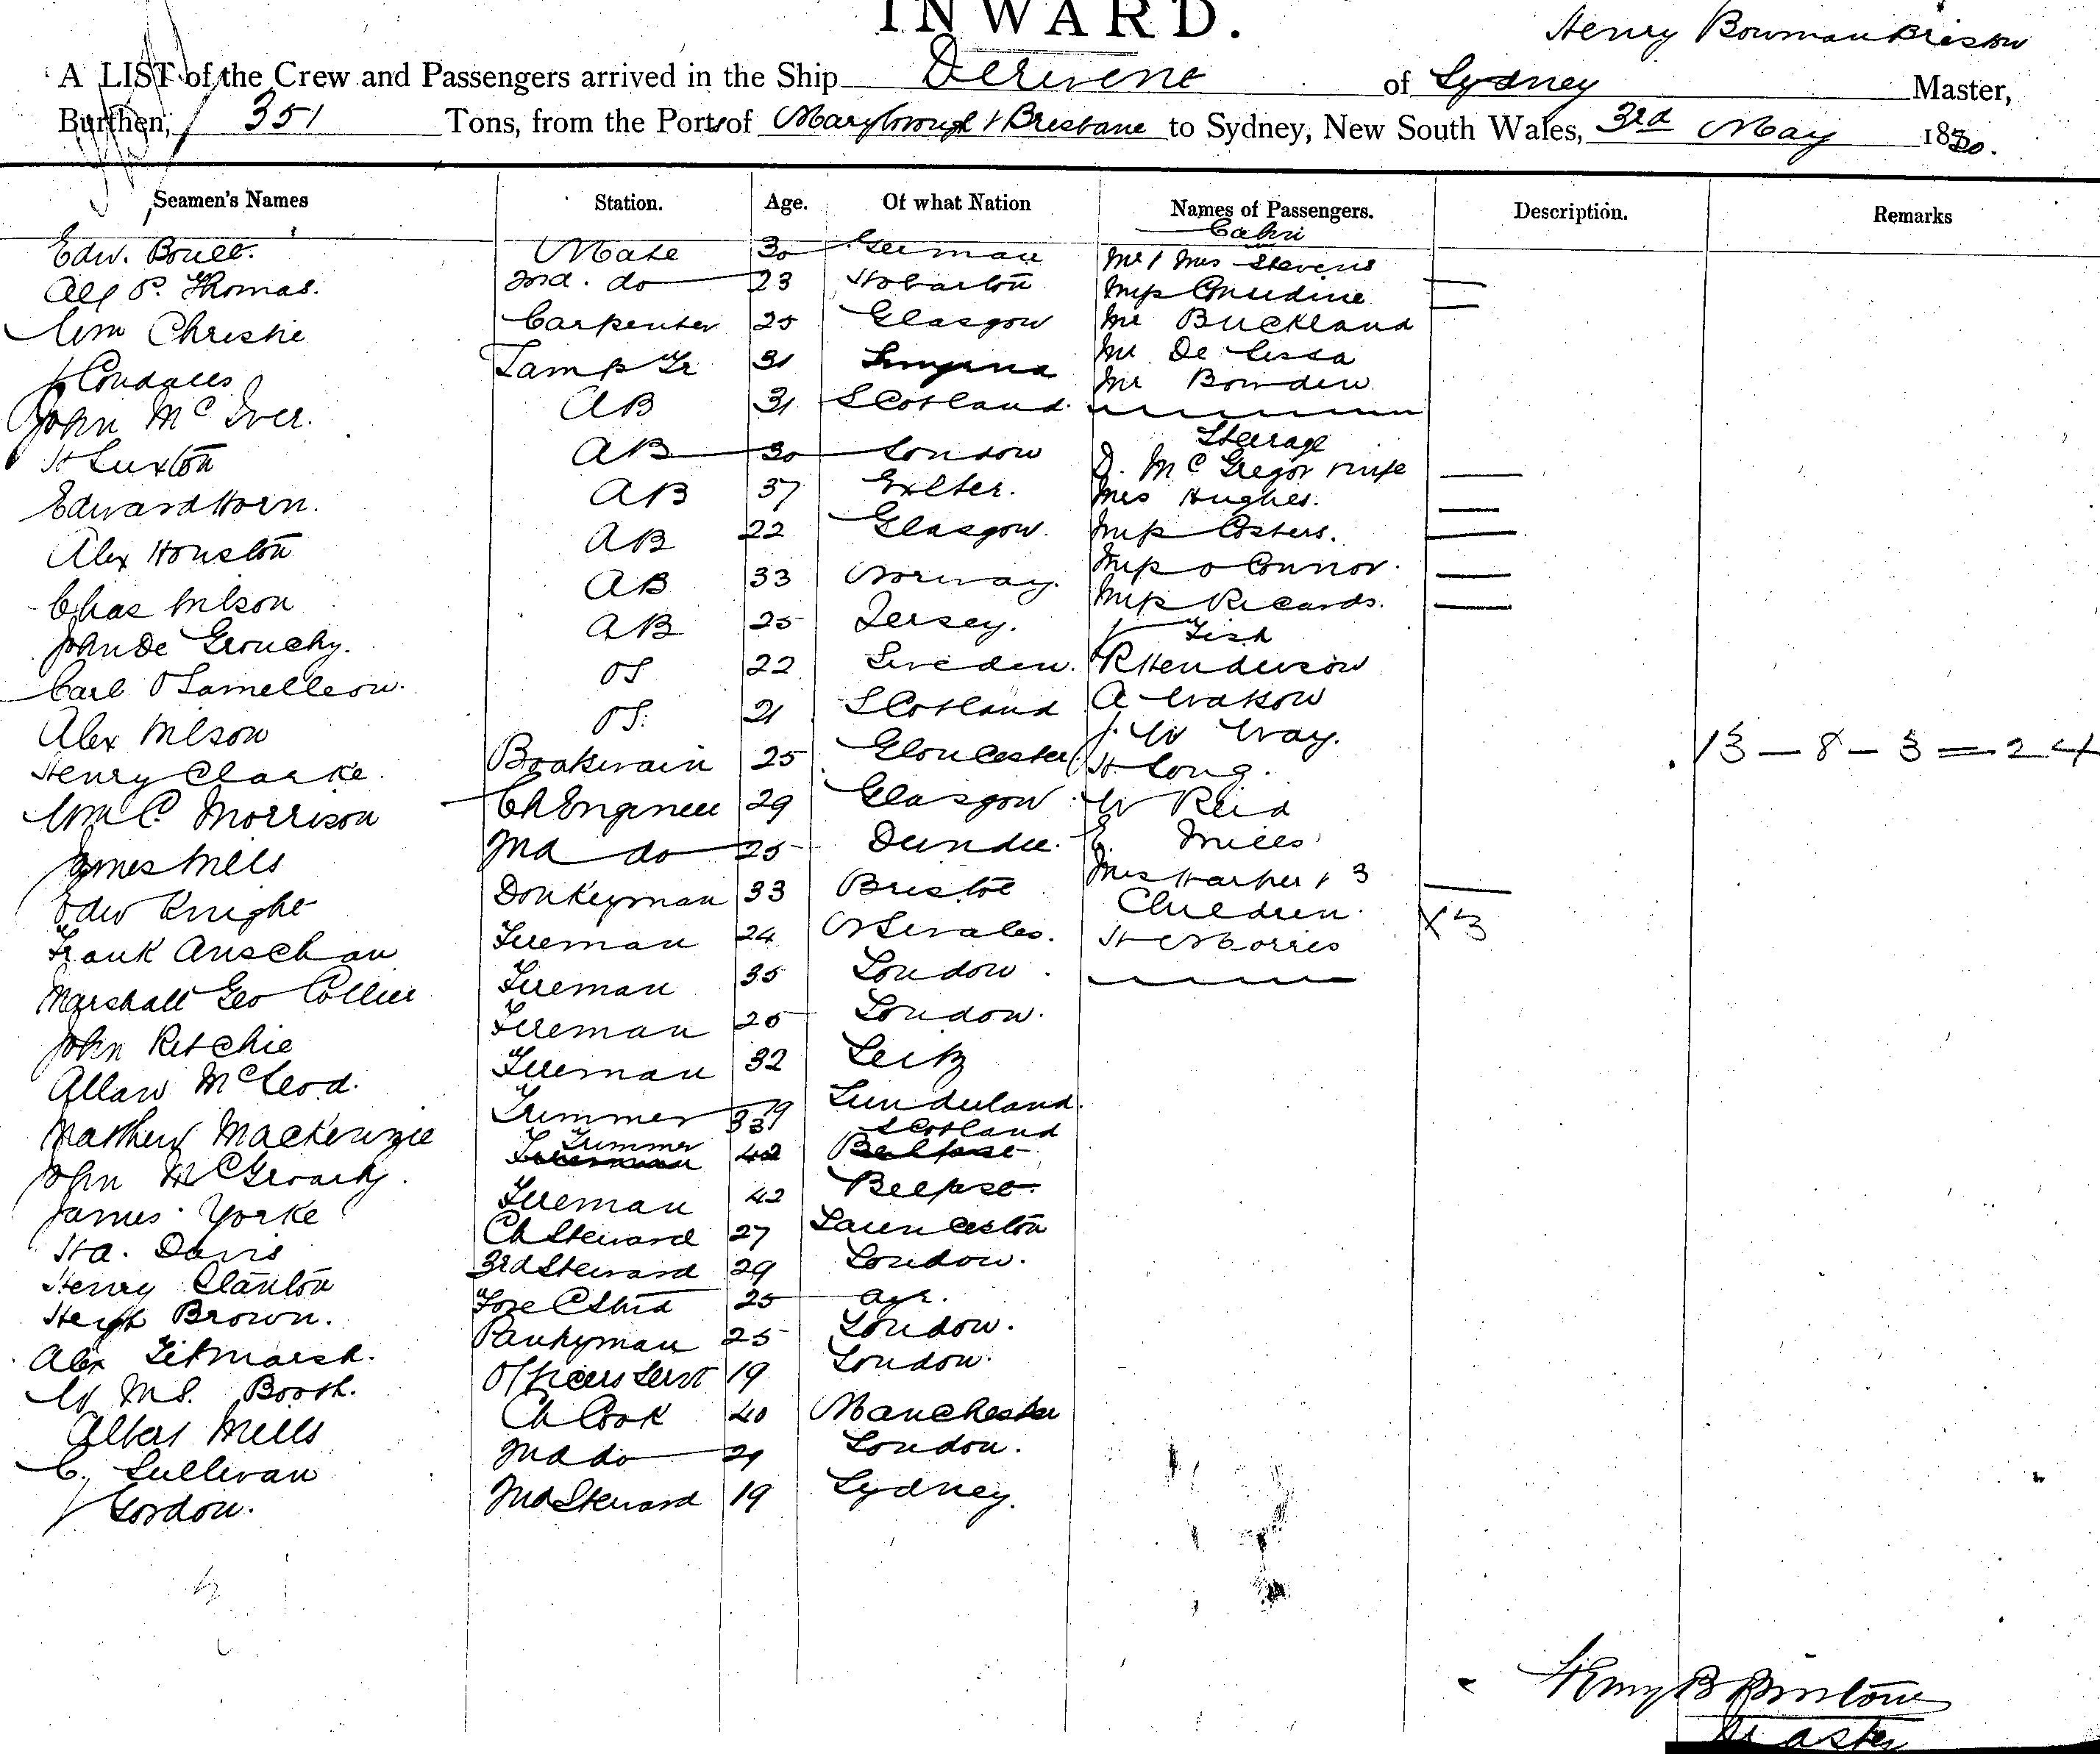 INWARD.
Henry Bowman Bristow
A LIST of the Crew and Passengers arrived in the Ship Derwent of Sydney Master,
Burthen, 351 Tons, from the Ports of Maryborough & Brisbane to Sydney, New South Wales, 3rd May 1880.
Seamen's Names Station. Age. Of what Nation Names of Passengers. Description. Remarks
Cabin
Edw. Mate 30 German Mr & Mrs Stevens
Alf P. Thomas. 2nd. do 23 Hobarton Miss Considine
Wm Christie Carpenter 25 Glasgow Mr Buckland
J Condalles Lamp Tr 31 Smyrna Mr De Lissa
Mr Bowden
John McIver. AB 31 Scotland.
Steerage
H Luxton AB 30 London D. McGregor & wife
Edward Horn. AB 37 Exeter. Mrs Hughes.
Alex Houston AB 22 Glasgow. Miss Costers.
Chas Nilson AB 33 Norway. Miss O Connor.
John De Grouchy. AB 25 Jersey. Miss Ricards.
J Fish
Carl O OS 22 Sweden. R Henderson
Alex Nilson OS. 21 Scotland A Watson
J. W Way.
Henry Clarke. Boatswain 25 Gloucester H Long. 13 - 8 - 3 = 24
Wm C. Morrison Ch Engineer 29 Glasgow. W Reid
James Mills 2nd do 25 Dundee. E. Miles
Edw Knight Donkeyman 33 Bristol Mrs Harper & 3
Children. X 3
Frank Fireman 24 N S Wales. H Morris
Marshall Geo Collier Fireman 35 London.
John Ritchie Fireman 25 London.
Allan McLeod. Fireman 32 Leith
Matthew Mackenzie Trimmer 19 Sunderland.
John Trimmer 33 Scotland
Fireman 42 Belfast
James Yorke Fireman 42 Belfast.
H A. Davis Ch Steward 27 Launceston
Henry Stanton 3rd Steward 29 London.
Hugh Brown. Fore C Stwd 25 Ayr.
Alex Titmarsh. Pantryman 25 London.
W M S. Booth. Officers Servt 19 London.
Albert Mills Ch Cook 40 Manchester
C. Sullivan 2nd do 21 London.
J Gordon. 2nd Steward 19 Sydney.
Henry B Bristow
Master